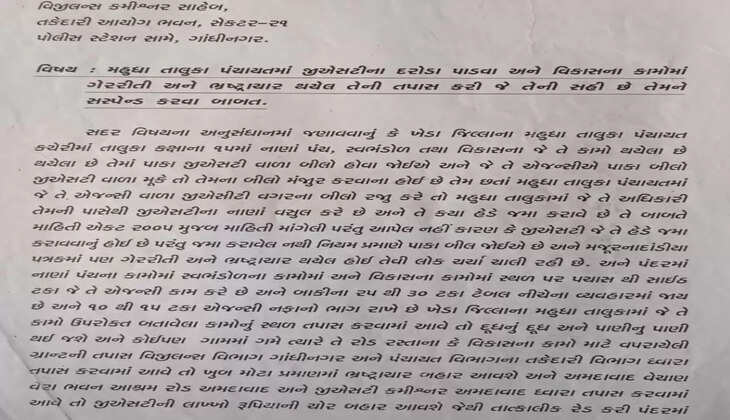 વિજીલન્સ કમીશ્નર સાહેબ,
તકેદારી આયોગ ભવન, સેક્ટર-૨૧
પોલીસ સ્ટેશન સામે, ગાંધીનગર.
વિષય : મહુધા તાલુકા પંચાયતમાં જીએસટીના દરોડા પાડવા અને વિકાસના કામોમાં
ગેરરીતી અને ભ્રષ્ટ્રાચાર થયેલ તેની તપાસ કરી જે તેની સહી છે તેમને
સસ્પેન્ડ કરવા બાબત.
સદર વિષયના અનુસંધાનમાં જણાવવાનું કે ખેડા જિલ્લાના મહુધા તાલુકા પંચાયત
કચેરીમાં તાલુકા કક્ષાના ૧૫માં નાણાં પંચ, સ્વભંડોળ તથા વિકાસના જે તે કામો થયેલા છે
થયેલા છે તેમાં પાકા જીએસટી વાળા બીલો હોવા જોઈએ અને જે તે એજન્સીએ પાકા બીલો
જીએસટી વાળા મૂકે તો તેમના બીલો મંજુર કરવાના હોઈ છે તેમ છતાં મહુધા તાલુકા પંચાયતમાં
જે તે એજન્સી વાળા જીએસીટી વગરના બીલો રજુ કરે તો મહુધા તાલુકામાં જે તે અધિકારી
તેમની પાસેથી જીએસટીના નાણાં વસુલ કરે છે અને તે કયા હેડે જમા કરાવે છે તે બાબતે
માહિતી એકટ ૨૦૦૫ મુજબ માહિતી માંગેલી પરંતુ આપેલ નહીં કારણ કે જીએસટી જે તે હેડે જમા
કરાવવાનું હોઈ છે પરંતુ જમા કરાવેલ નથી નિયમ પ્રમાણે પાકા બીલ જોઈએ છે અને મજૂરનાદાંડીયા
પત્રકમાં પણ ગેરરીતી અને ભ્રષ્ટ્રાચાર થયેલ હોઈ તેવી લોક ચર્ચા ચાલી રહી છે. અને પંદરમાં
નાણાં પંચના કામોમાં સ્વભંડોળના કામોમાં અને વિકાસના કામોમાં સ્થળ પર પચાસ થી સાઈઠ
ટકા જે તે એજન્સી કામ કરે છે અને બાકીના ૨૫ થી ૩૦ ટકા ટેબલ નીચેના વ્યવહારમાં જાય
છે અને ૧૦ થી ૧૫ ટકા એજન્સી નફાનો ભાગ રાખે છે ખેડા જિલ્લાના મહુધા તાલુકામાં જે તે
કામો ઉપરોકત બતાવેલા કામોનું સ્થળ તપાસ કરવામાં આવે તો દૂધનું દૂધ અને પાણીનુ પાણી
થઈ જશે અને કોઈપણ ગામમાં ગમે ત્યારે તે રોડ રસ્તાના કે વિકાસના કામો માટે વપરાયેલી
ગ્રાન્ટની તપાસ વિજીલન્સ વિભાગ ગાંધીનગર અને પંચાયત વિભાગના તકેદારી વિભાગ ધ્વારા
તપાસ કરવામાં આવે તો ખુબ મોટા પ્રમાણમાં ભ્રષ્ટ્રાચાર બહાર આવશે અને અમદાવાદ વેચાણ
વેરા ભવન આશ્રમ રોડ અમદાવાદ અને જીએસટી કમીશ્નર અમદાવાદ ધ્વારા તપાસ કરવામાં
આવે તો જીએસટીની લાખ્ખો રૂપિયાની ચોર બહાર આવશે જેથી તાત્કાલીક રેડ કરી પંદરમાં